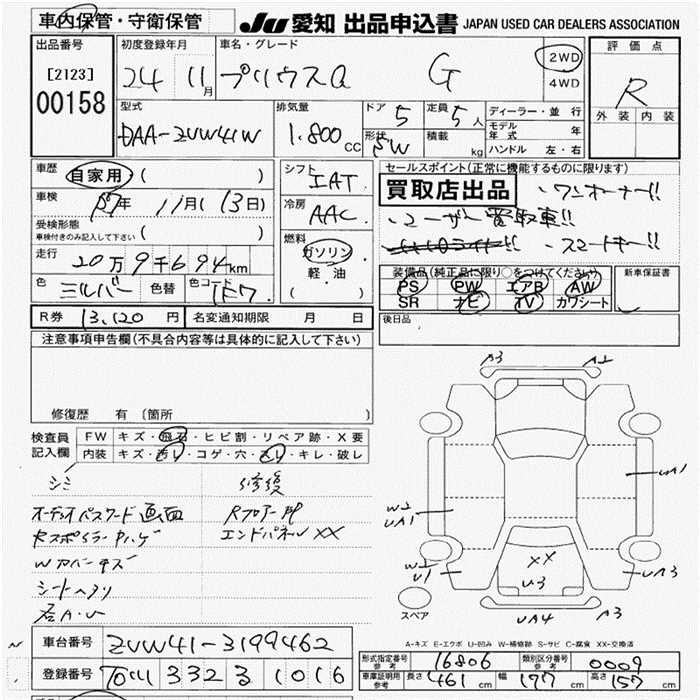 車内保管・守衛保管
JU 愛知 出品申込書 JAPAN USED CAR DEALERS ASSOCIATION
出品番号 初度登録年月 車名・グレード 2WD 評価点
[2123] 24 11月 プリウスα G 4WD R
00158
型式 排気量 ドア 5 定員 5人 ディーラー・並行 外装 内装
DAA-ZVW41W 1.800cc 形状 SW 積載 kg モデル年式 年
ハンドル 左・右
車歴 自家用 ( ) シフト IAT セールスポイント(正常に機能するものに限ります)
車検 年 11月(13日) 冷房 AAC 買取店出品 ・ワンオーナー!!
受検形態 ・ユーザー買取車!!
車検付きのみ記入して下さい ( ) 燃料 ・スマートキー!!
走行 20万9千694km ガソリン
軽・油 装備品(純正品に限り○をつけてください) 新車保証書
色 シルバー 色替 色コード 1F7 ( ) PS PW エアB AW
SR ナビ TV カワシート
R券 13,120円 名変通知期限 月 日 後日品
注意事項申告欄(不具合内容等は具体的に記入して下さい)
修復歴 有 〔箇所 〕
検査員 FW キズ・飛石・ヒビ割・リペア跡・X要
記入欄 内装 キズ・汚レ・コゲ・穴・スレ・キレ・破レ
シミ 修復
オーディオパスワード画面 Rフロアー
Rスポイラー エンドパネル XX
Wカバーキズ
シートヘタリ
A3 A2
UA1
W2
UA1
W2
U1
XX
U3
UA3
UA4 A3
スペア
A-キズ E-エクボ U-凹み W-補修跡 S-サビ C-腐食 XX-交換済
車台番号 ZVW41-3199462
登録番号 石川 332 る 1016
形式指定番号 参考 16806 類別区分番号 参考 0009
車庫証明用 参考 長さ 461cm 幅 177cm 高さ 157cm